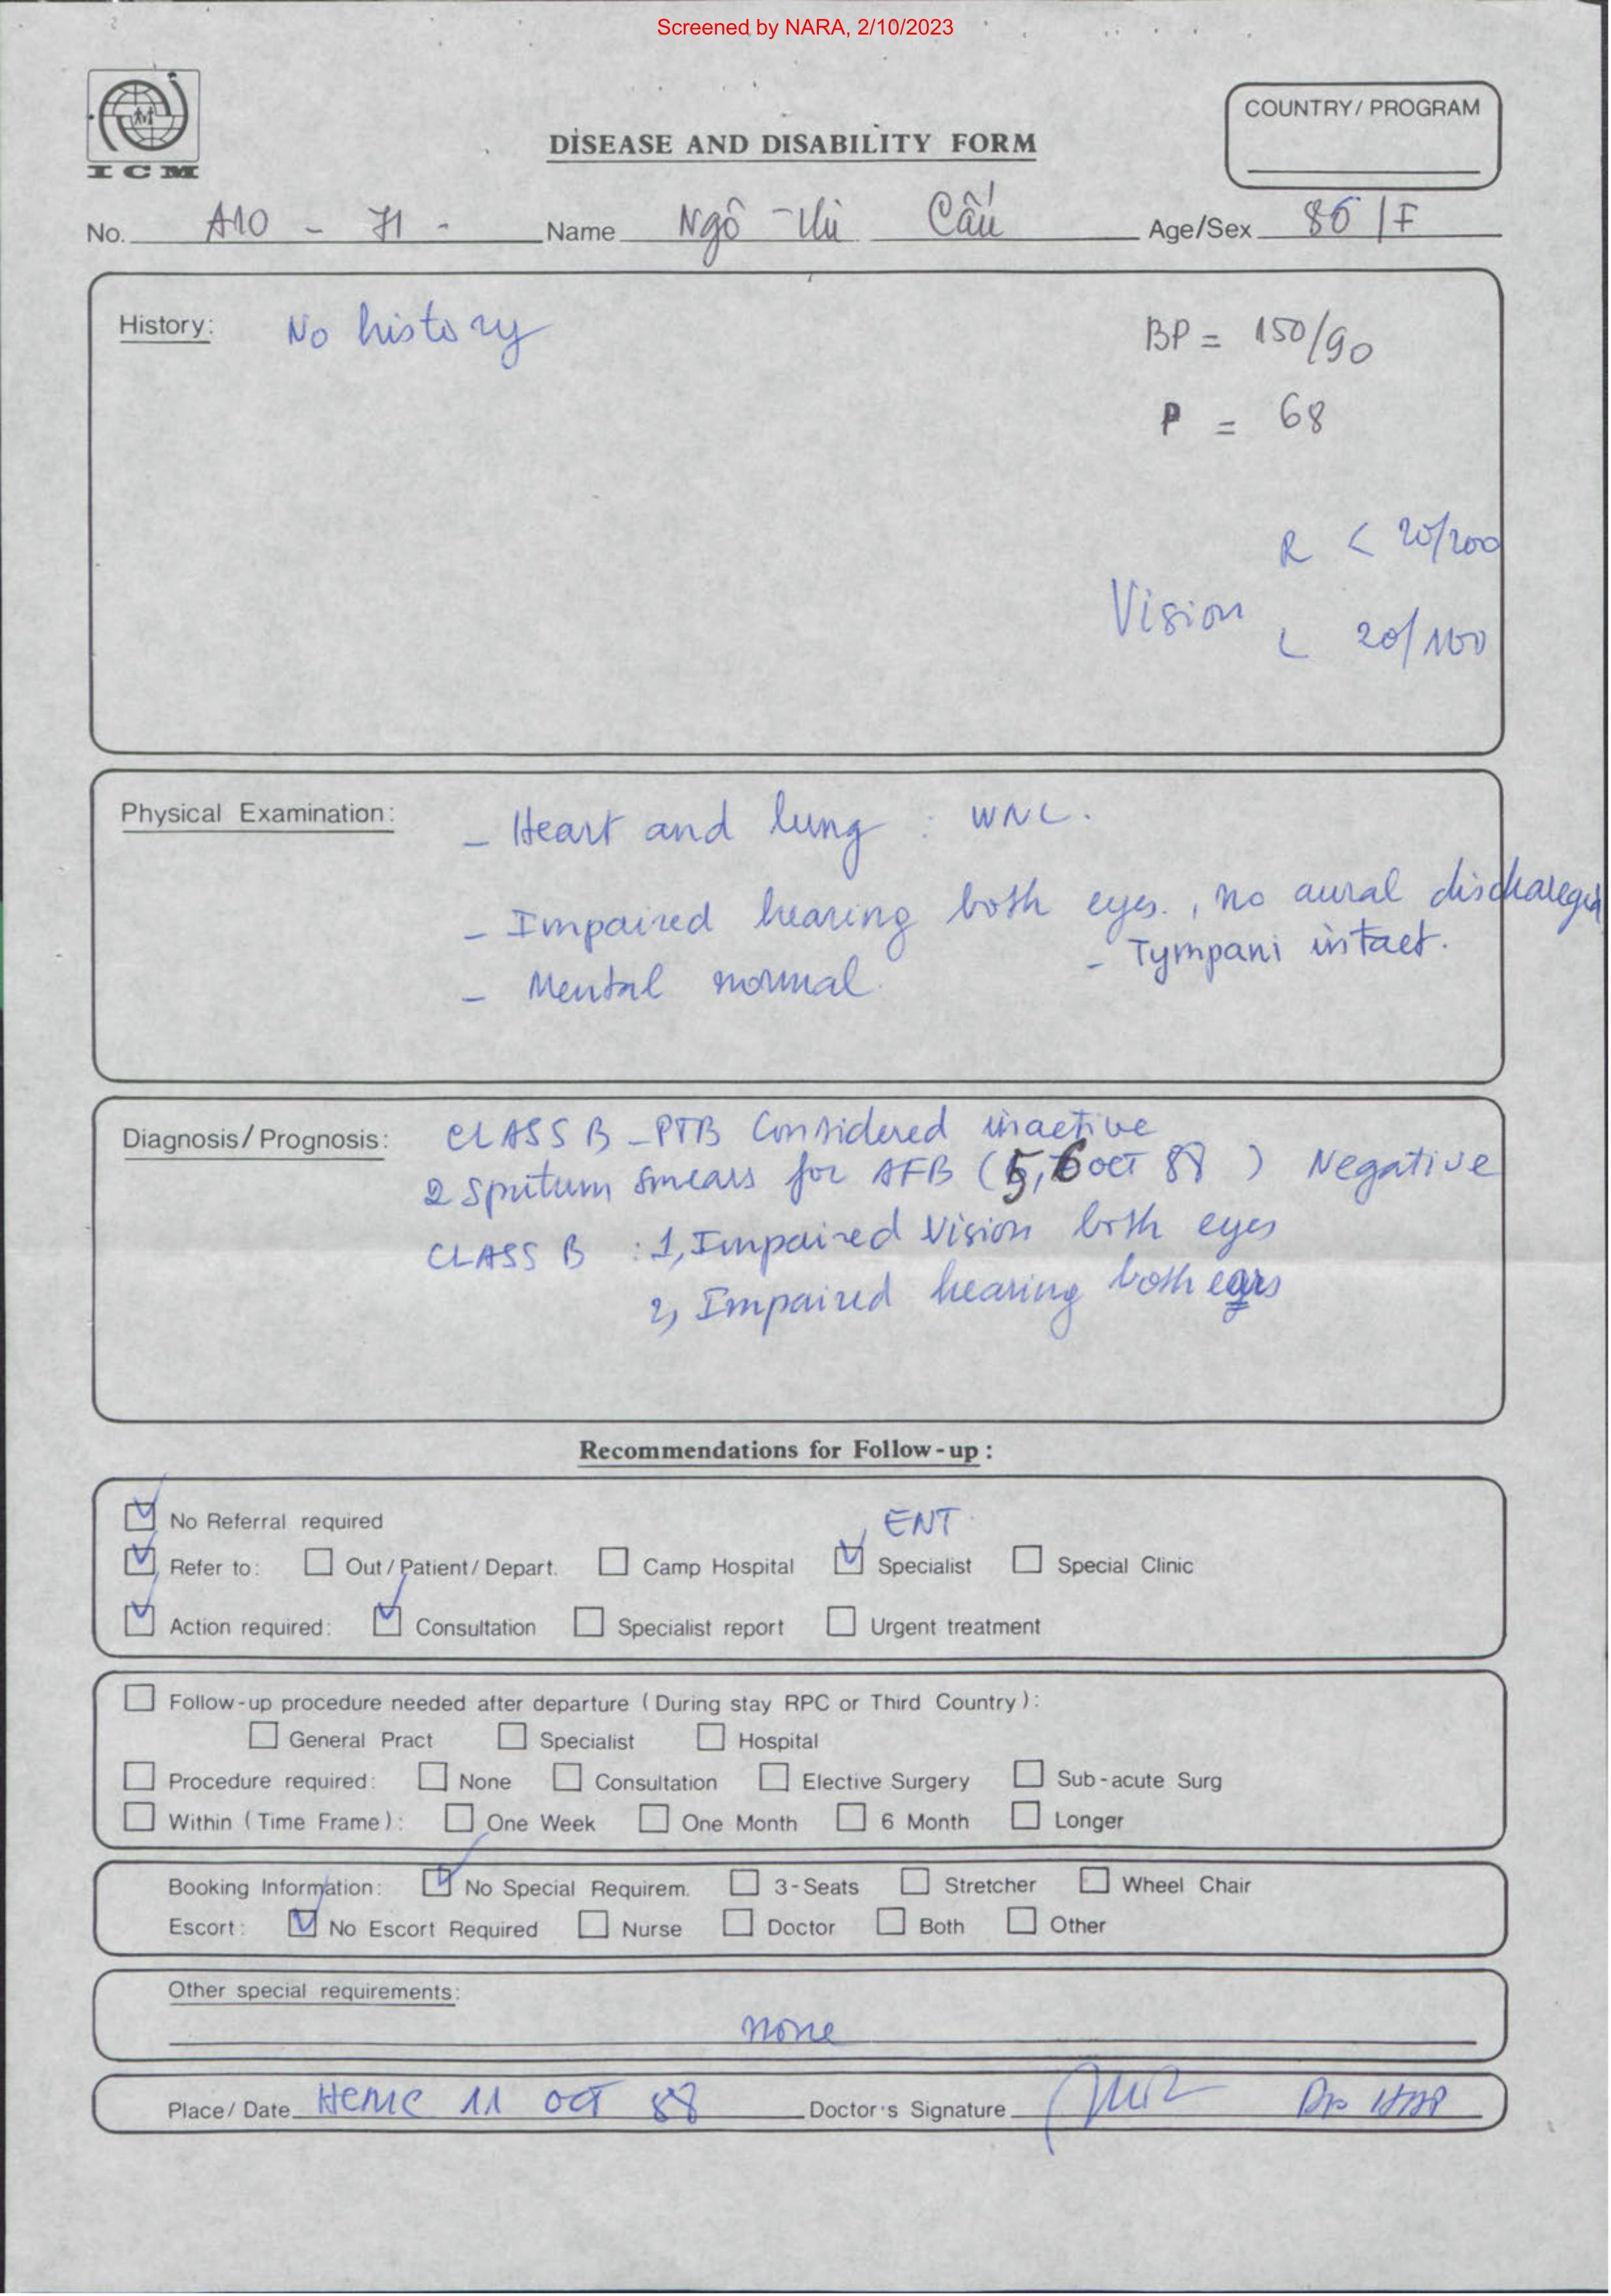 Screened by NARA, 2/10/2023
ICM
DISEASE AND DISABILITY FORM
COUNTRY/ PROGRAM
No. A10 - 71 - Name Ngô Thị Cấu Age/Sex 86 / F
History: No history
BP = 150/90
P = 68
R < 20/200
Vision
L 20/100
Physical Examination:
- Heart and lung : WNL.
- Impaired hearing both eyes., no aural discharged
- Tympani intact.
- Mental normal.
Diagnosis/ Prognosis: CLASS B - PTB Considered inactive
2 Sputum smears for AFB (5, 6 OCT 88) Negative
CLASS B : 1, Impaired Vision both eyes
2, Impaired hearing both ears
Recommendations for Follow-up :
No Referral required
ENT
Refer to: Out/Patient/Depart. Camp Hospital Specialist Special Clinic
Action required: Consultation Specialist report Urgent treatment
Follow-up procedure needed after departure (During stay RPC or Third Country):
General Pract Specialist Hospital
Procedure required: None Consultation Elective Surgery Sub-acute Surg
Within (Time Frame): One Week One Month 6 Month Longer
Booking Information: No Special Requirem. 3-Seats Stretcher Wheel Chair
Escort: No Escort Required Nurse Doctor Both Other
Other special requirements:
none
Place/ Date 11 OCT 88 Doctor's Signature Dr